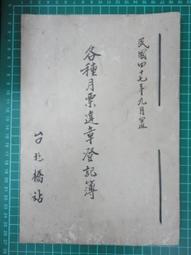 民國四十七年九月置
各種月票違章登記簿
台北橋站